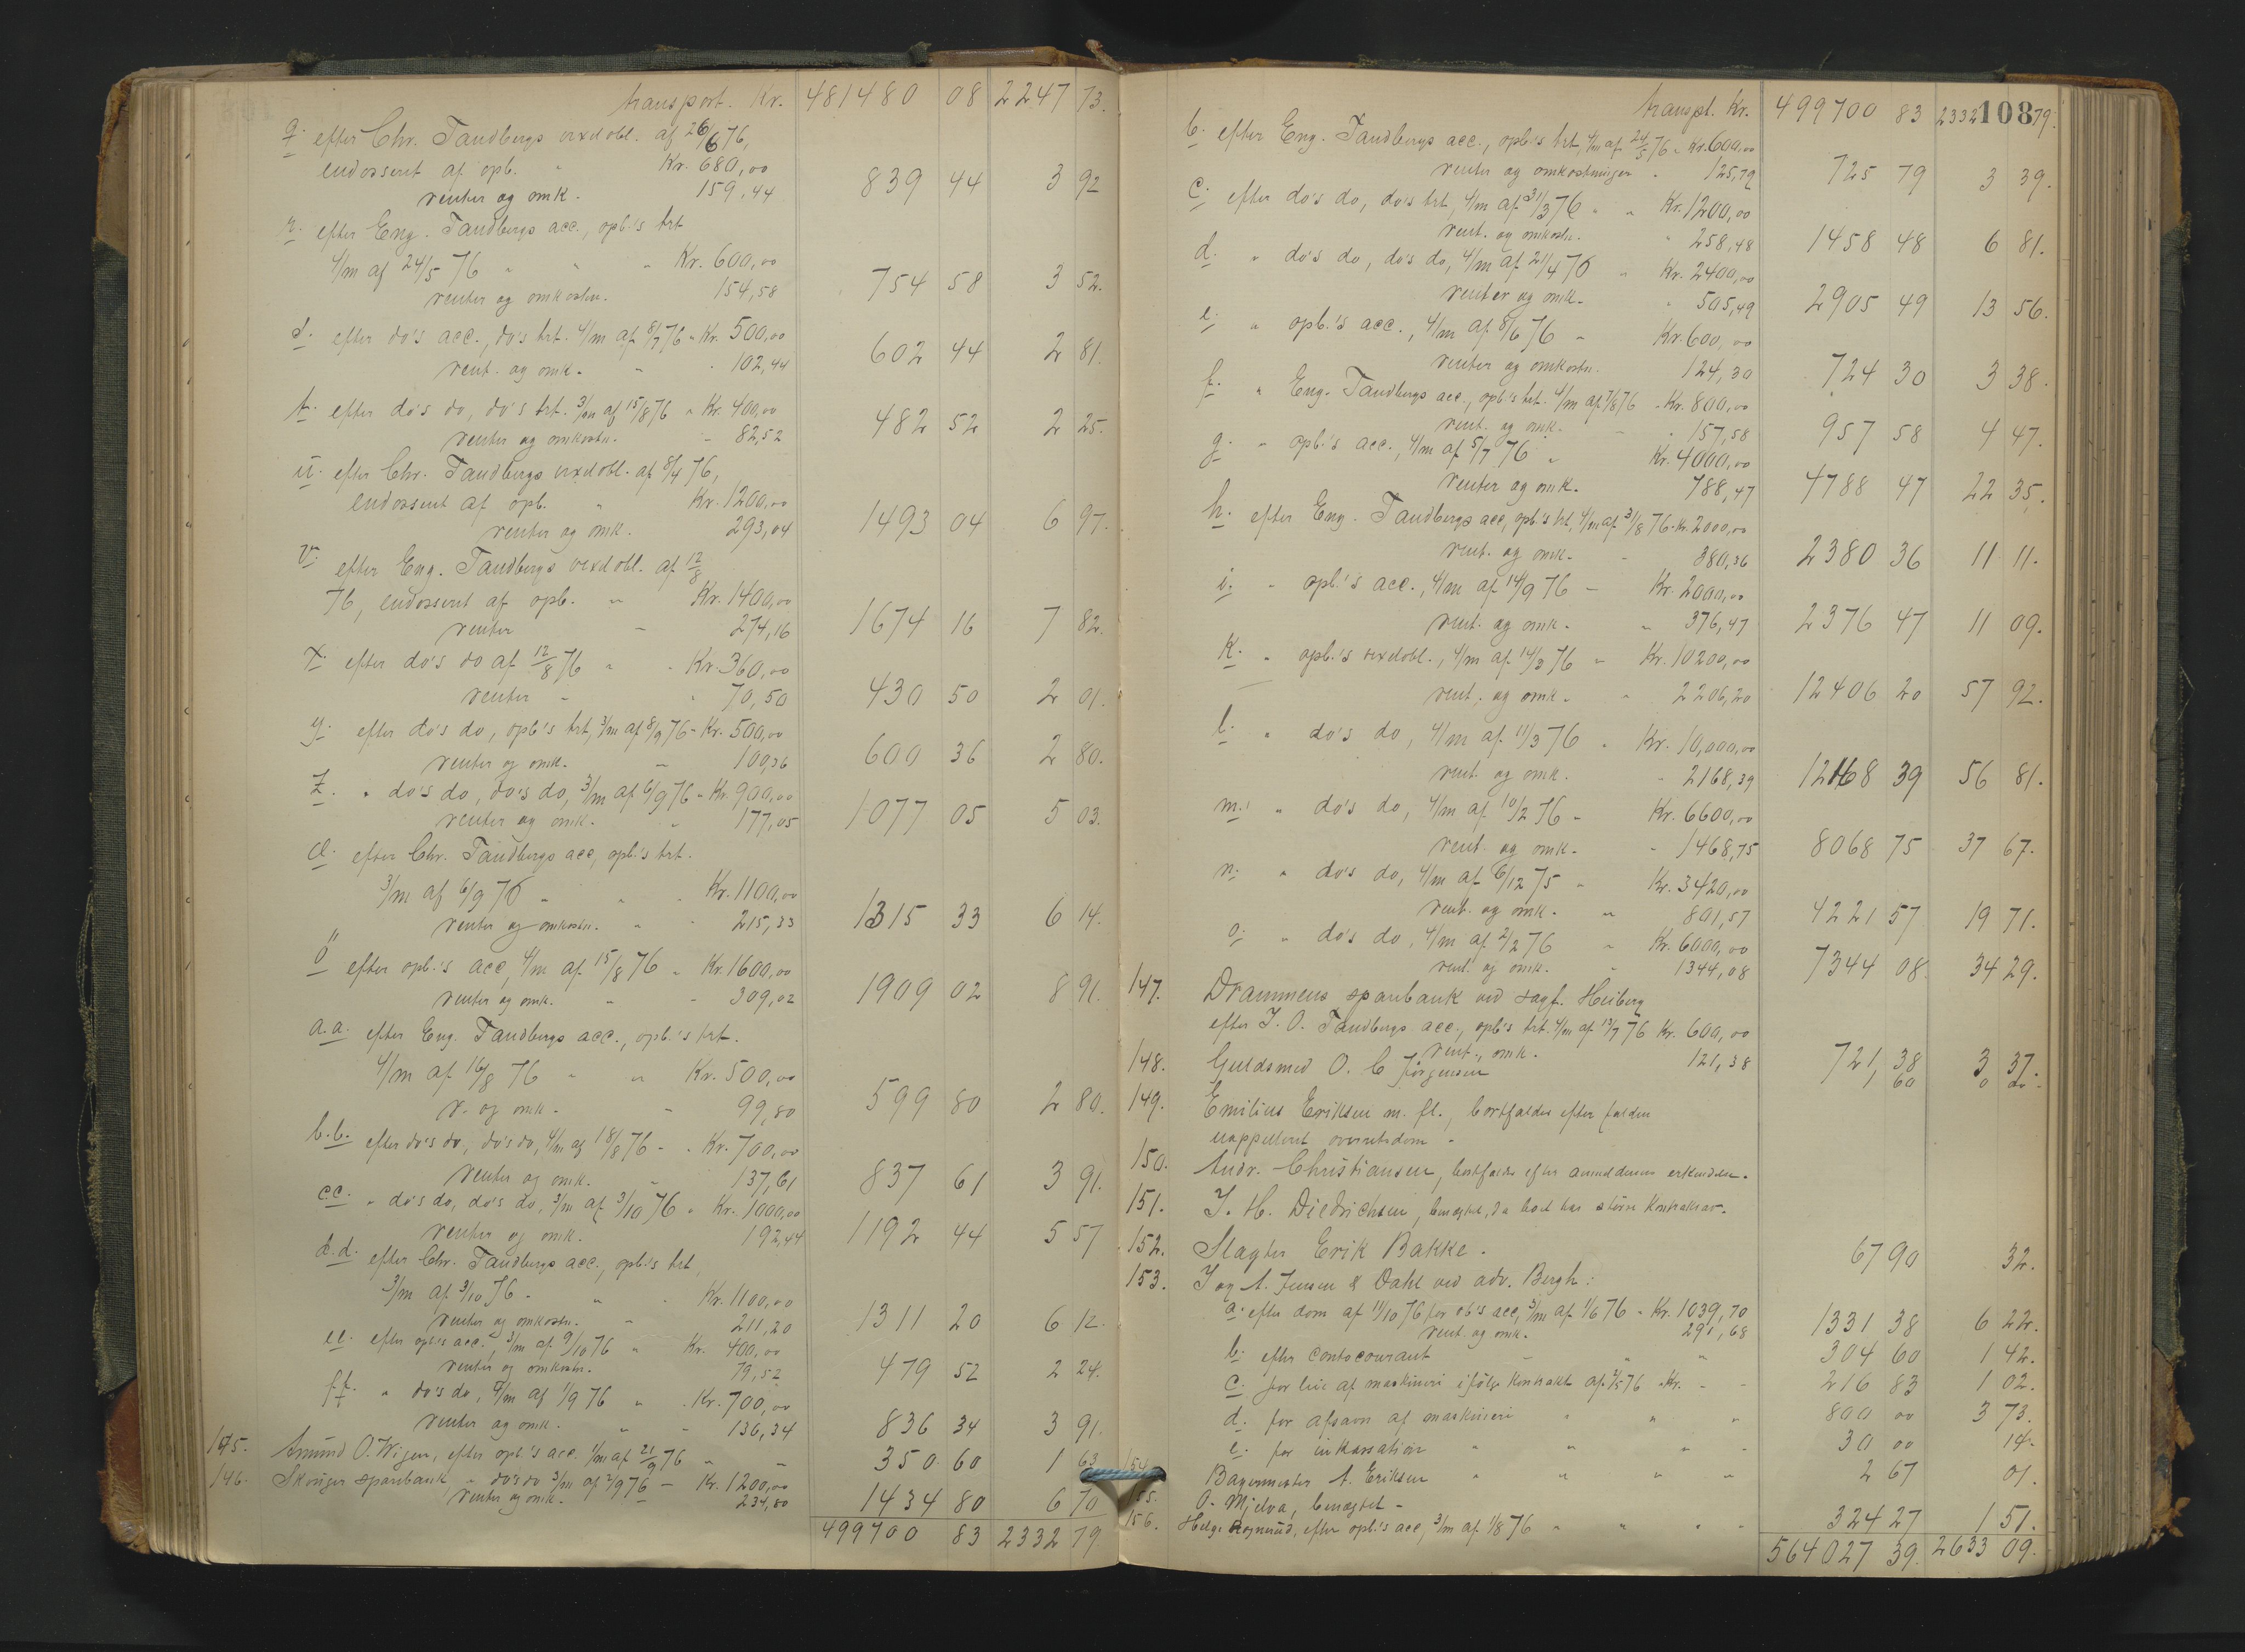 transport. Kr. 481480 08 2247 73.
q. efter Chr. Tandbergs vexelobl. af 26/6 76,
endosseret af opb. " Kr. 680,00
renter og omk. 159,44 839 44 3 92
r. efter Eng. Tandbergs acc., opb.'s trt
4/m af 24/5 76 " " " Kr. 600,00
renter og omkostn. 154,58 754 58 3 52.
s. efter do's acc., do's trt. 4/m af 8/7 76 " Kr. 500,00
rent. og omk. " " 102,44 602 44 2 81.
t. efter do's do, do's trt. 3/m af 15/8 76 " Kr. 400,00
renter og omkostn. " 82,52 482 52 2 25.
u. efter Chr. Tandbergs vexelobl. af 8/4 76,
endosseret af opb. " Kr. 1200,00
renter og omk. 293,04 1493 04 6 97.
v. efter Eng. Tandbergs vexelobl. af 12/8
76, endosseret af opb. " Kr. 1400,00
renter " 274,16 1674 16 7 82.
x. efter do's do af 12/8 76 " " Kr. 360,00
renter " " 70,50 430 50 2 01.
y. efter do's do, opb's trt, 3/m af 8/9 76 " Kr. 500,00
renter og omk. " 100,36 600 36 2 80.
z. " do's do, do's do, 3/m af 6/9 76 " Kr. 900,00
renter og omk. " 177,05 1077 05 5 03.
æ. efter Chr. Tandbergs acc, opb's trt.
3/m af 6/9 76 " " " Kr. 1100,00
renter og omkostn. " " 215,33 1315 33 6 14.
ö efter opb.'s acc, 4/m af 15/8 76 " Kr. 1600,00
renter og omk. " " 309,02 1909 02 8 91.
a.a. efter Eng. Tandbergs acc., opb.'s trt.
4/m af 16/8 76 " " Kr. 500,00
r. og omk. " 99,80 599 80 2 80.
b.b. efter do's do, do's do, 4/m af 18/8 76 " " Kr. 700,00
renter og omk. " 137,61 837 61 3 91.
c.c. " do's do, do's do, 3/m af 3/10 76 " Kr. 1000,00
renter og omk. 192,44 1192 44 5 57
d.d. efter Chr. Tandbergs acc., opb.'s trt,
3/m af 3/10 76 " " " Kr. 1100,00
renter og omkostn. " 211,20 1311 20 6 12.
e.e. efter opb.'s acc., 3/m af 9/10 76 " Kr. 400,00
renter og omkostn. 79,52 479 52 2 24.
f.f. " do's do, 4/m af 1/9 76 " " Kr. 700,00
renter og omk. " " 136,34 836 34 3 91.
145. Amund O. Wigen, efter opb.'s acc. 1/m af 21/9 76 " " 350 60 1 63
146. Skouger sparebank, " do's do 3/m af 2/9 76 " Kr. 1200,00
renter og omk. " 234,80 1434 80 6 70
499700 83 2332 79.
108
transpt. Kr. 499700 83 2332 79.
b. efter Eng. Tandbergs acc., opb.'s trt, 4/m af 24/5 76 " Kr. 600,00
renter og omkostninger " 125,79 725 79 3 39.
c. efter do's do, do's trt, 4/m af 31/3 76 " " Kr. 1200,00
rent. og omkostn. " 258,48 1458 48 6 81.
d. " do's do, do's do, 4/m af 21/4 76 " Kr. 2400,00
renter og omk. " 505,49 2905 49 13 56.
e. " opb.'s acc., 4/m af 8/6 76 " Kr. 600,00
renter og omkostn. 124,30 724 30 3 38.
f. " Eng. Tandbergs acc., opb.'s trt. 4/m af 7/8 76 " Kr. 800,00
rent. og omk. " " 157,58 957 58 4 47.
g. " opb.'s acc., 4/m af 5/7 76 " Kr. 4000,00
renter og omk. 788,47 4788 47 22 35.
h. efter Eng. Tandbergs acc, opb.'s trt, 4/m af 3/8 76 " Kr. 2000,00
rent. og omk. " 380,36 2380 36 11 11.
i. " opb.'s acc., 4/m af 14/9 76 " Kr. 2000,00
rent. og omk. " 376,47 2376 47 11 09.
k. " opb.'s vexelobl., 4/m af 14/3 76 " Kr. 10200,00
rent. og omk. " 2206,20 12406 20 57 92.
l. " do's do, 4/m af 11/3 76 " Kr. 10,000,00
rent. og omk. " 2168,39 12168 39 56 81.
m. " do's do, 4/m af 10/2 76 " Kr. 6600,00
rent. og omk. " 1468,75 8068 75 37 67.
n. " do's do, 4/m af 6/12 75 " Kr. 3420,00
rent. og omk. " 801,57 4221 57 19 71.
o. " do's do, 4/m af 2/2 76 " Kr. 6000,00
rent. og omk. " 1344,08 7344 08. 34 29.
147. Drammens sparebank ved sagf. Heiberg
efter J. O. Tandbergs acc., opb's trt. 4/m af 13/7 76 Kr. 600,00
rent., omk. 121,38 721,38 3 37.
148. Guldsmed O. C Jörgensen 1 60
149. Emilius Eriksen m. fl., bortfalder efter falden
uappelleret overretsdom.
150. Andr. Christiansen, bortfalder efter anmelderens erkjendelse.
151. J. H. Diedrichsen, benægtet, da boet har större kontrakrav.
152. Slagter Erik Bakke. 67 90 32.
153. J og A. Jensen & Dahl ved adv. Bergh:
a. efter dom af 11/10 76 for ob's acc, 3/m af 1/6 76 " Kr. 1039,70
rent. og omk. 291,68 1331 38 6 22.
b. efter contocourant " " " 304 60 1 42.
c. for leie af maskineri ifölge kontrakt af 4/5 76 " Kr. " " 216 83 1 02.
d. for afsavn af maskineri " " " 800 00 3 73.
e. for inkassation " " " " 30 00 14.
154. Bagermester A. Eriksen " " " " 2 67 01.
155. O. Mjelva, benægtet.
156. Helge Rognerud, efter opb.'s acc, 3/m af 1/8 76 " " " " 324 27 1 51.
564027 39. 2633 09.